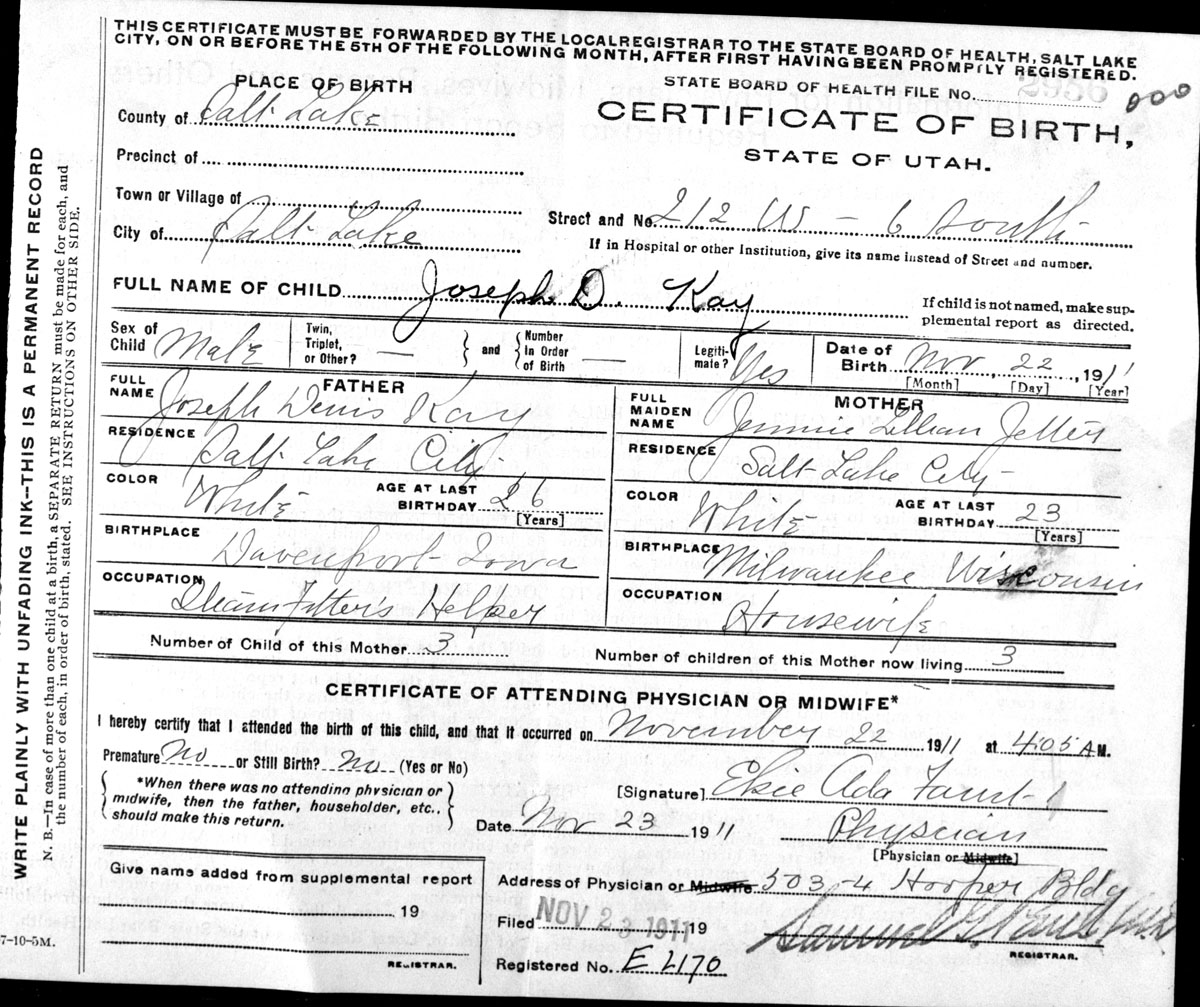 THIS CERTIFICATE MUST BE FORWARDED BY THE LOCAL REGISTRAR TO THE STATE BOARD OF HEALTH, SALT LAKE
CITY, ON OR BEFORE THE 5TH OF THE FOLLOWING MONTH, AFTER FIRST HAVING BEEN PROMPTLY REGISTERED.
PLACE OF BIRTH
STATE BOARD OF HEALTH FILE NO. 000
County of Salt Lake
CERTIFICATE OF BIRTH,
STATE OF UTAH.
Precinct of
Town or Village of
City of Salt Lake
Street and No. 212 W - 6 South
If in Hospital or other Institution, give its name instead of Street and number.
FULL NAME OF CHILD Joseph D. Kay
If child is not named, make sup-
plemental report as directed.
Sex of Child Male
Twin, Triplet, or Other? —
and
Number In Order of Birth —
Legiti-mate? Yes
Date of Birth Nov 22, 1911
[Month] [Day] [Year]
FATHER
FULL NAME Joseph Denis Kay
RESIDENCE Salt Lake City
COLOR White
AGE AT LAST BIRTHDAY 26
[Years]
BIRTHPLACE Davenport Iowa
OCCUPATION Steamfitters Helper
MOTHER
FULL MAIDEN NAME Jennie Lillian
RESIDENCE Salt Lake City
COLOR White
AGE AT LAST BIRTHDAY 23
[Years]
BIRTHPLACE Milwaukee Wisconsin
OCCUPATION Housewife
Number of Child of this Mother 3
Number of children of this Mother now living 3
CERTIFICATE OF ATTENDING PHYSICIAN OR MIDWIFE*
I hereby certify that I attended the birth of this child, and that it occurred on November 22 1911 at 4:05 A M.
Premature No or Still Birth? No (Yes or No)
*When there was no attending physician or
midwife, then the father, householder, etc.,
should make this return.
[Signature] Elsie Ada Faust
Date Nov 23 1911
Physician
[Physician or Midwife]
Give name added from supplemental report
19
REGISTRAR.
Address of Physician or Midwife 503-4 Hooper Bldg
Filed NOV 23 1911 19
Registered No. E 4170
REGISTRAR.
7-10-5M.
WRITE PLAINLY WITH UNFADING INK--THIS IS A PERMANENT RECORD
N. B.—In case of more than one child at a birth, a SEPARATE RETURN must be made for each, and
the number of each, in order of birth, stated. SEE INSTRUCTIONS ON OTHER SIDE.